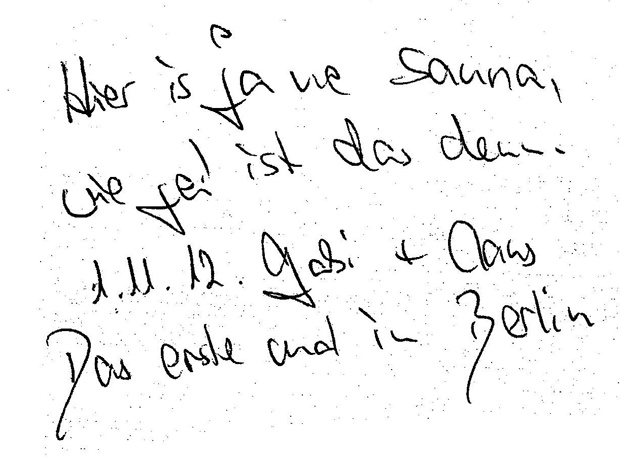 Hier is ja ne Sauna,
wie geil ist das denn.
1.11.12. Gabi + Claus
Das erste und in Berlin